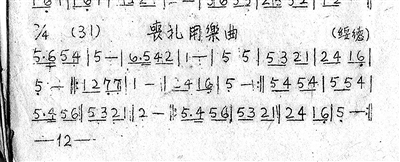 2/4 (31) 喪礼用樂曲 (綏德)
5.654|5—|6.542|1—|5 5|5321|2416|
5—:‖:1277|1—|:2416|5—:‖5454|554|
5.456|5321|2—:‖:5.456|5321|2416|5—:‖
—12—